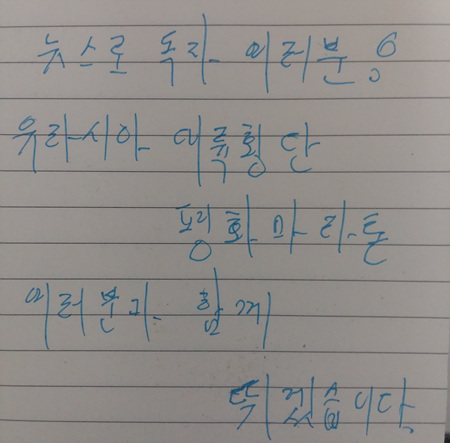 뉴스로 독자 여러분!
유라시아 대륙횡단
평화마라톤
여러분과 함께
뛰겠습니다.